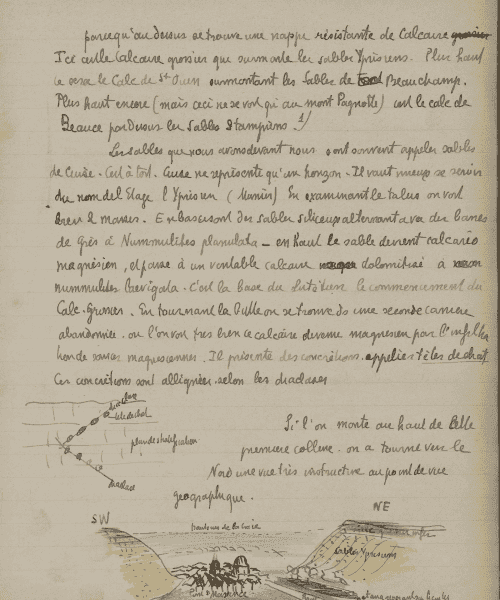 parcequ'au dessus se trouve une nappe résistante de Calcaire grossier
Ice calle Calcaire grossier que surmonte les sables Yprisiens. Plus haut
ce sera le Calc de St Ouen surmontant les Sables de Beauchamp.
Plus haut encore (mais ceci ne se voit qu'au mont Pagnotte) c'est le calc de
Beauce par dessus les Sables Stampiens 1)
Les Sables que nous avons devant nous sont souvent appelés sables
de Cuise. C'est à tort. Cuise ne représente qu'un horizon. Il vaut mieux se servir
du nom de l'Etage l'Yprisien ( ) En examinant le talus on voit
bien 2 masses. En bas ce sont des sables siliceux alternant avec des bancs
de grès à Nummulites planulata - en haut le sable devient calcaréo
magnésien, et passe à un véritable calcaire dolomitisé à
nummulites laevigata. C'est la base du Lutétien le commencement du
Calc. Grossier. En tournant la butte on se trouve ds une seconde carrière
abandonnée. où l'on voit très bien ce calcaire devenu magnésien par l'infiltra
tion de sources magnésiennes. Il présente des concrétions. appelées têtes de chat.
Ces concrétions sont allignées selon les diaclases
diaclase
tête de chat
plan de stratification
diaclase
Si l'on monte au haut de cette
première colline. on a tourné vers le
Nord une vue très instructive au point de vue
géographique.
SW
NE
hauteurs de la
Sables Yprisiens
Pont Ste Maxence